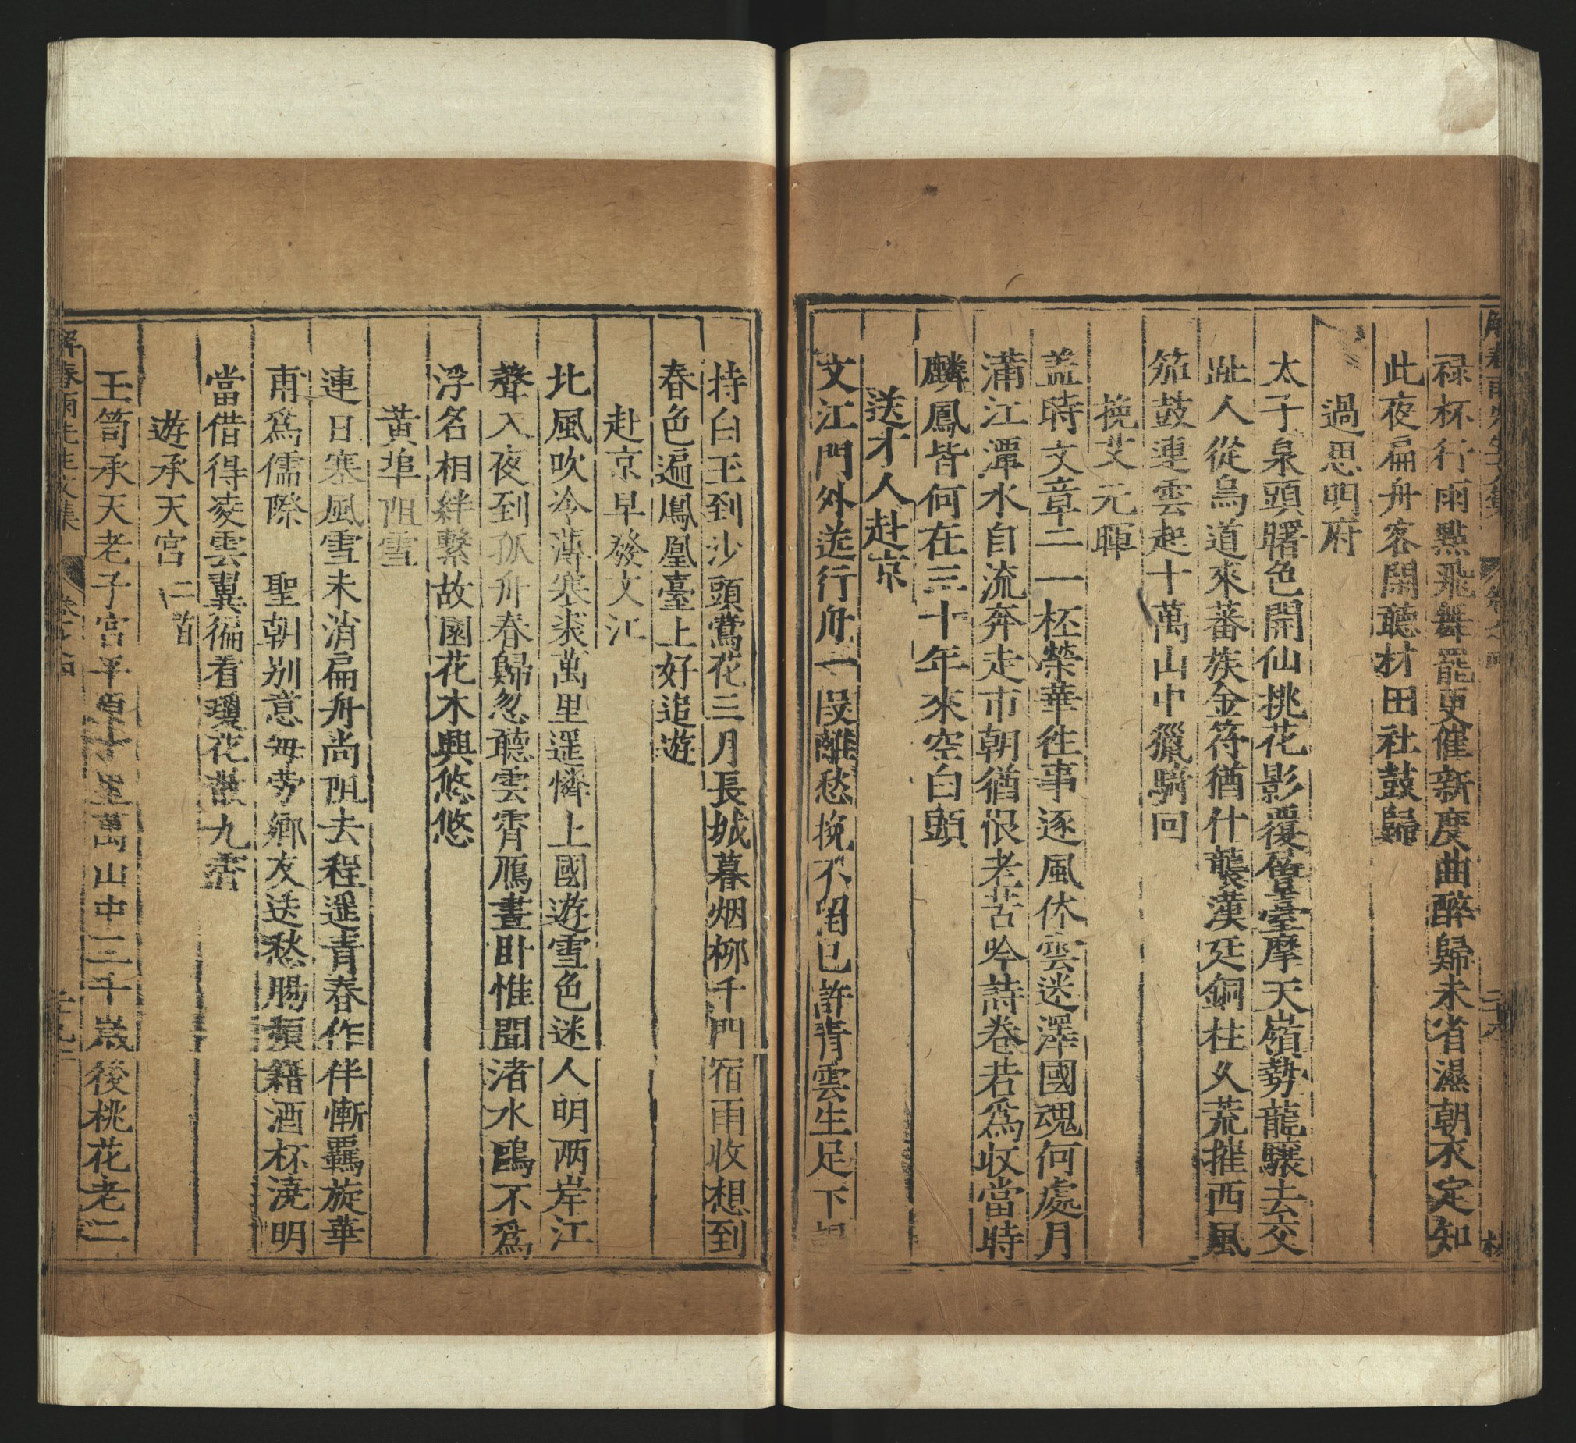 解春雨先生文集
禄杯行雨點飛舞罷更催新度曲醉歸未省濕朝衣定知
此夜扁舟客閑聽村田社鼓歸
過思明府
太子泉頭曙色開仙桃花影覆層臺摩天嶺勢龍驤去交
趾人從鳥道來蕃族金符猶什襲漢廷銅柱久荒摧西風
笳鼓連雲起十萬山中獵騎回
挽艾元暉
盖時文章二一柸榮華往事逐風休雲迷澤國魂何處月
蒲江潭水自流奔走市朝猶恨老苦吟詩卷若為収當時
麟鳳皆何在三十年來空白頭
送才人赴京
文江門外送行舟一段離愁挽不留已許青雲生足下
持白玉到沙頭鶯花三月長城暮烟栁千門宿雨收想到
春色遍鳳凰臺上好追遊
赴京早發文江
北風吹冷薄寒裘萬里遥憐上國遊雪色迷人明兩岸江
聲入夜到孤舟春歸忽聽雲霄鴈晝卧惟聞渚水鷗不為
浮名相絆繫故園花木興悠悠
黄埠阻雪
連日寒風雪未消扁舟尚阻去程遥青春作伴慚羈旋華
甫為儒際 聖朝别意每勞鄉友送愁腸頼籍酒杯澆明
當借得凌雲翼徧看瓊花散九霄
遊承天宫二首
玉笥承天老子宫平 里萬山中三千歳後桃花老二
解春雨先生文集